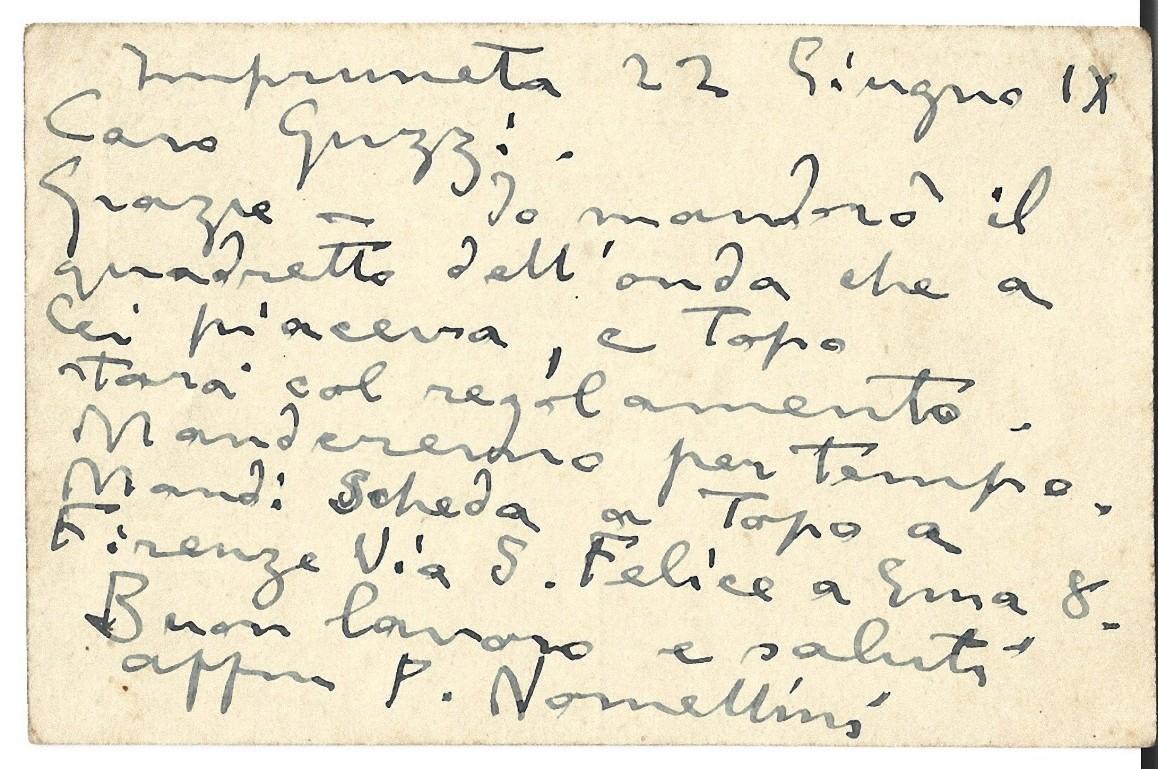 Impruneta 22 Giugno IX
Caro Guzzi.
Grazie — Io manderò il
quadretto dell'onda che a
Lei piaceva, e Topo
starà col regolamento.
Manderemo per tempo.
Mandi Scheda a Topo a
Firenze Via S. Felice a Ema 8.
Buon lavoro e saluti
affmi P. Nomellini